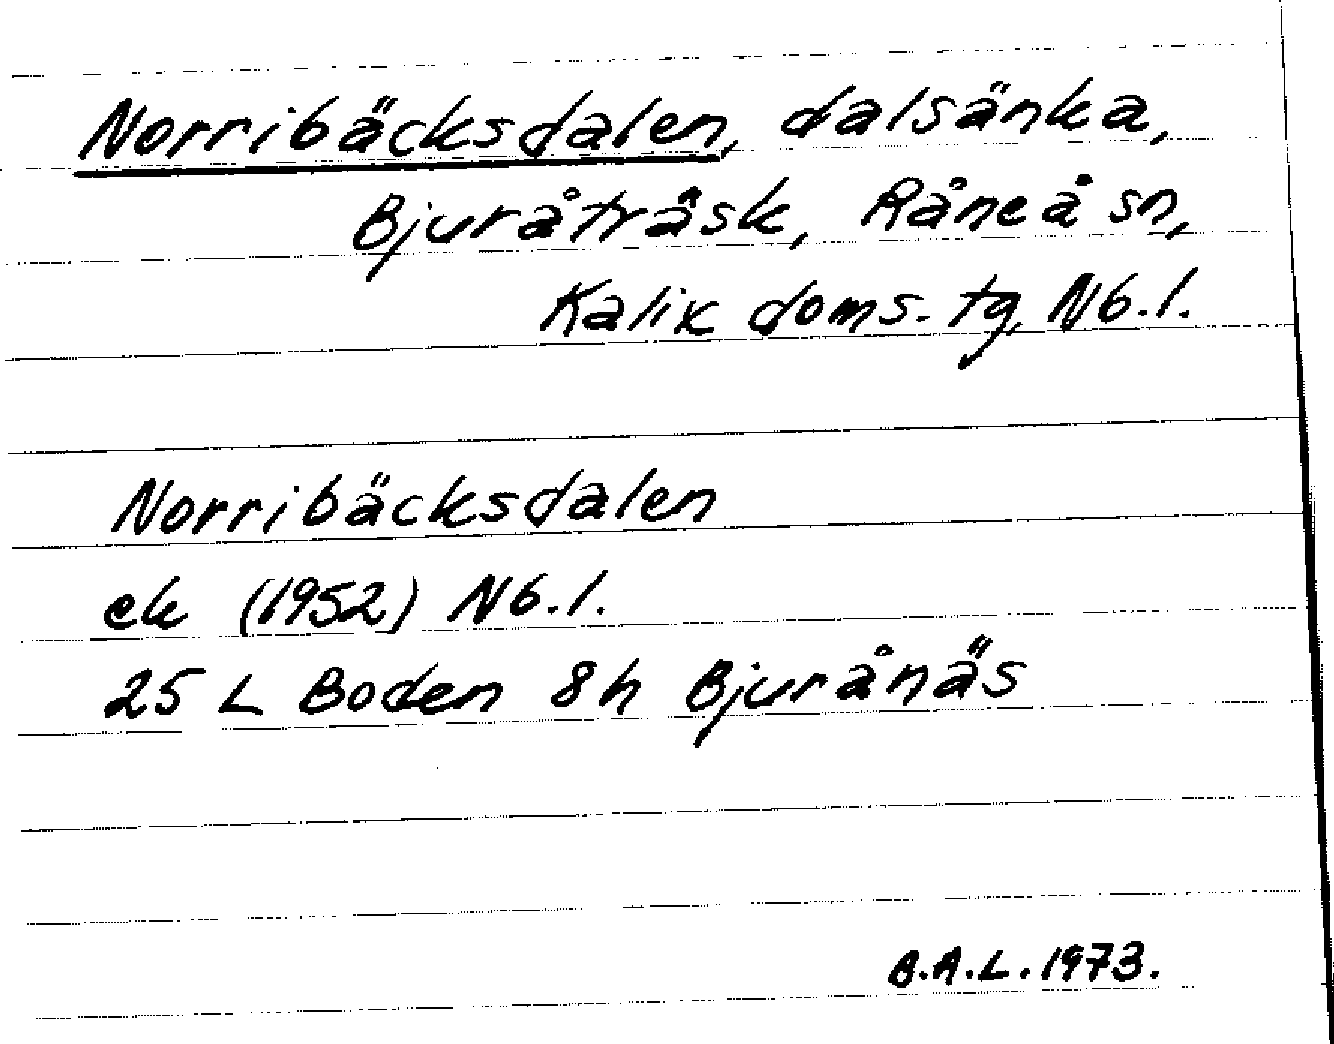 Norribäcksdalen, dalsänka,
Bjuråträsk, Råneå sn,
Kalix doms. tg, Nb. l.
Norribäcksdalen
ek (1952) Nb. l.
25 L Boden 8h Bjurånäs
B.A.L. 1973.